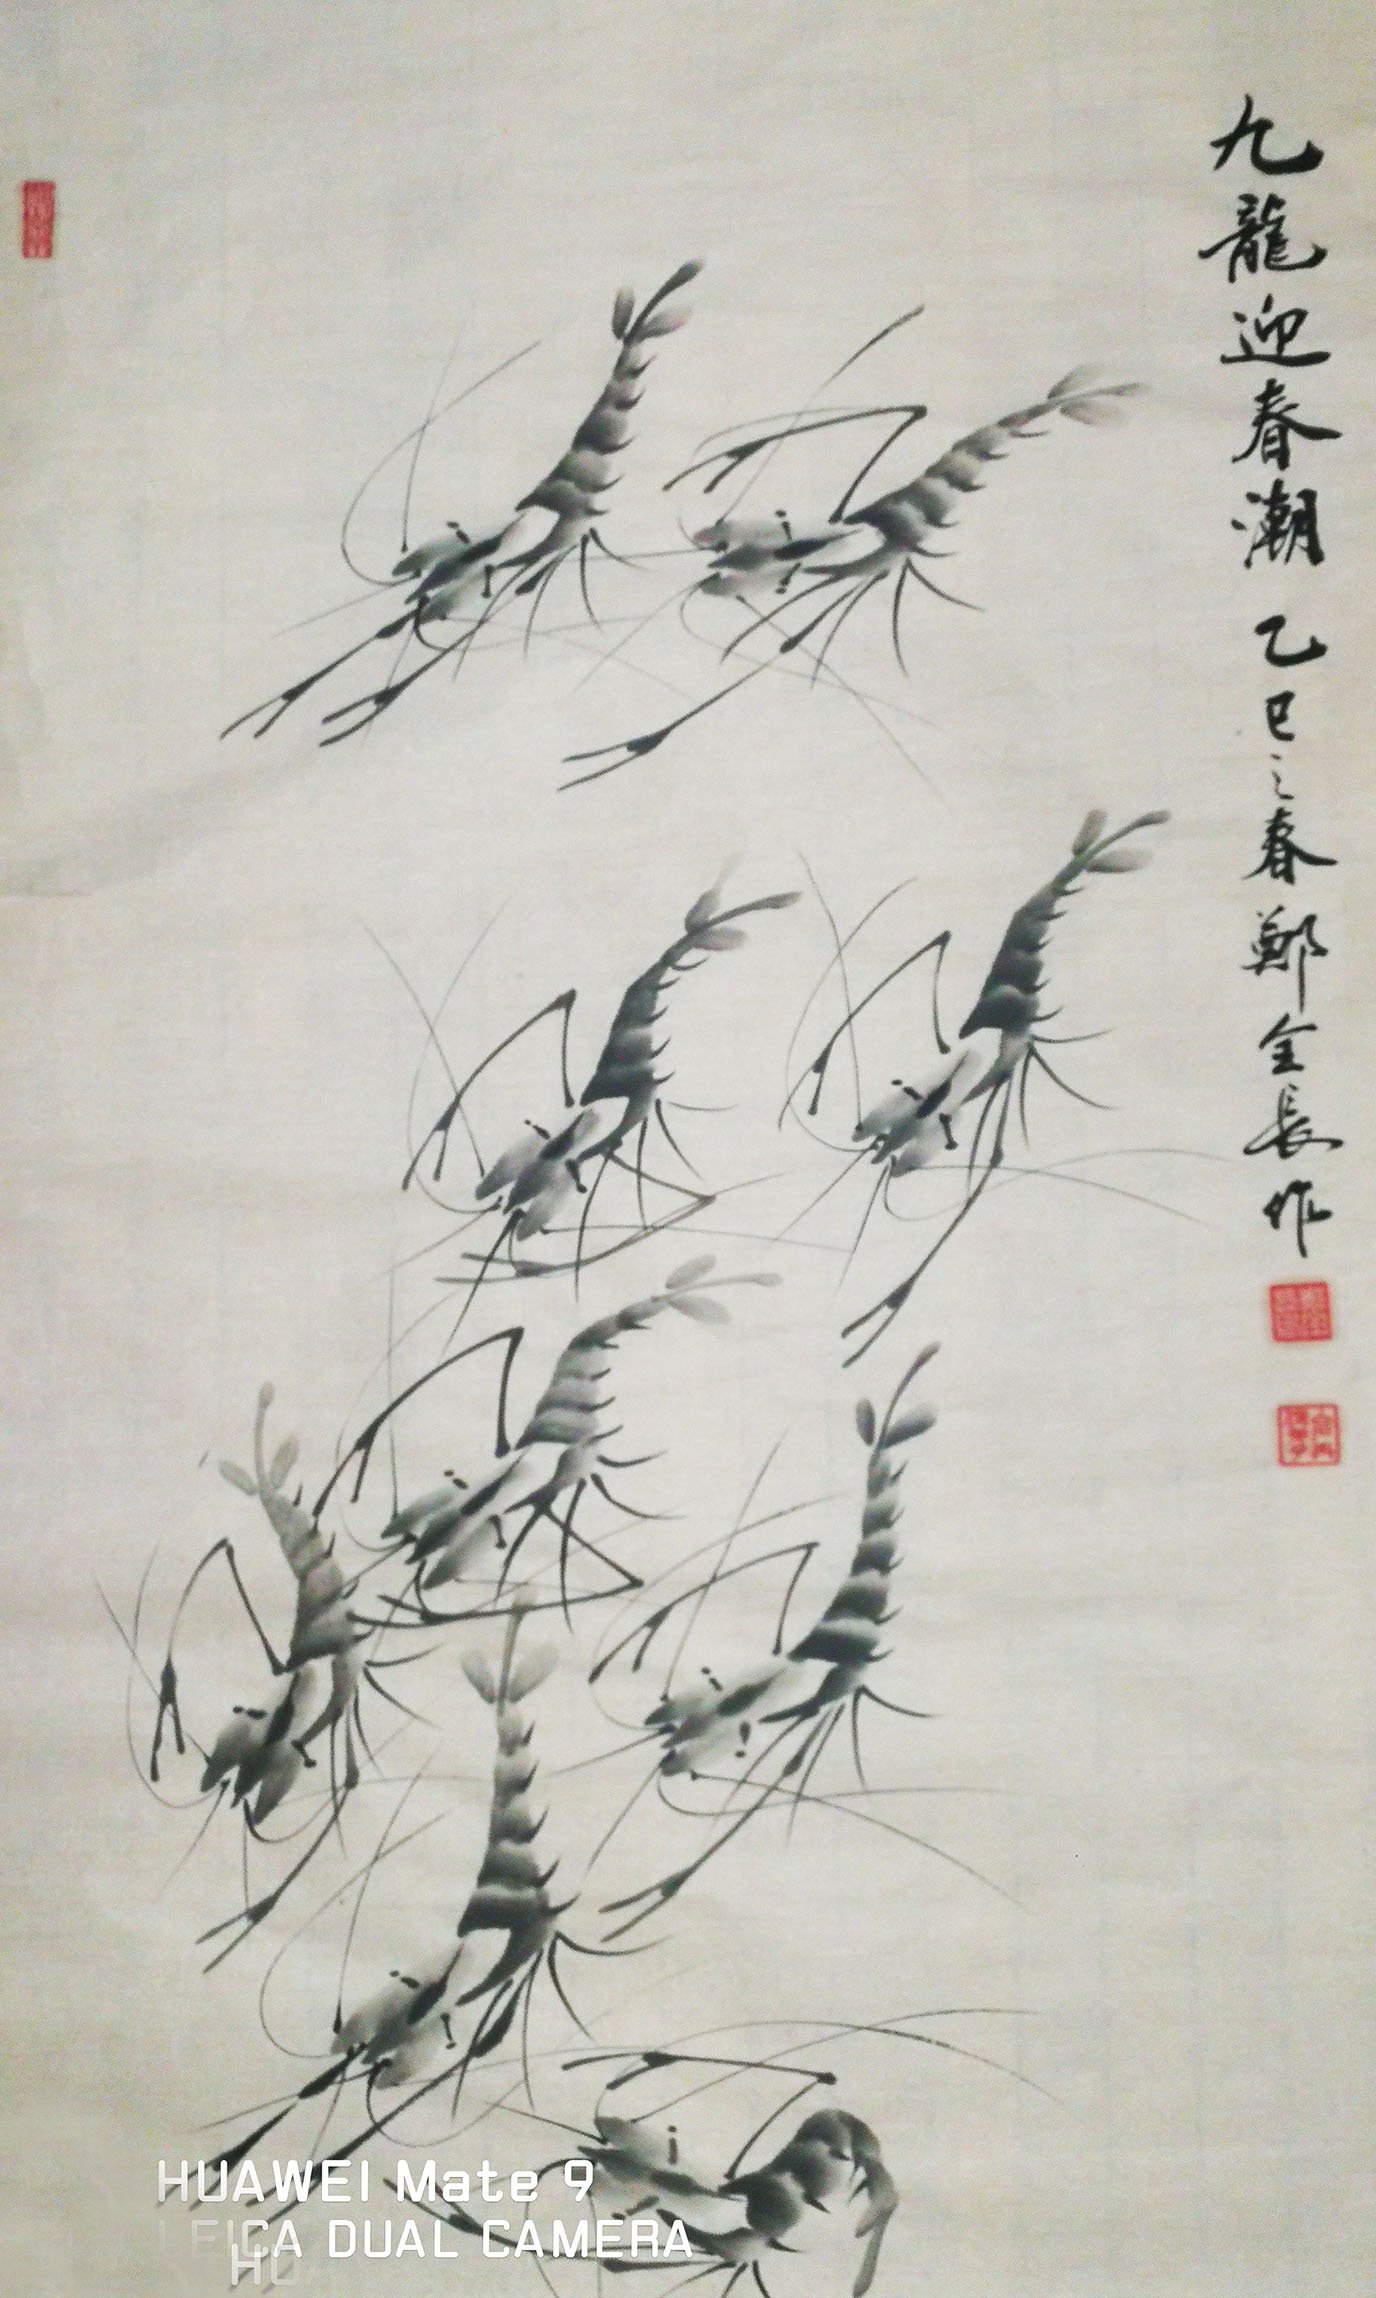 九龍迎春潮 乙巳之春 鄭全長作
HUAWEI Mate 9
LEICA DUAL CAMERA